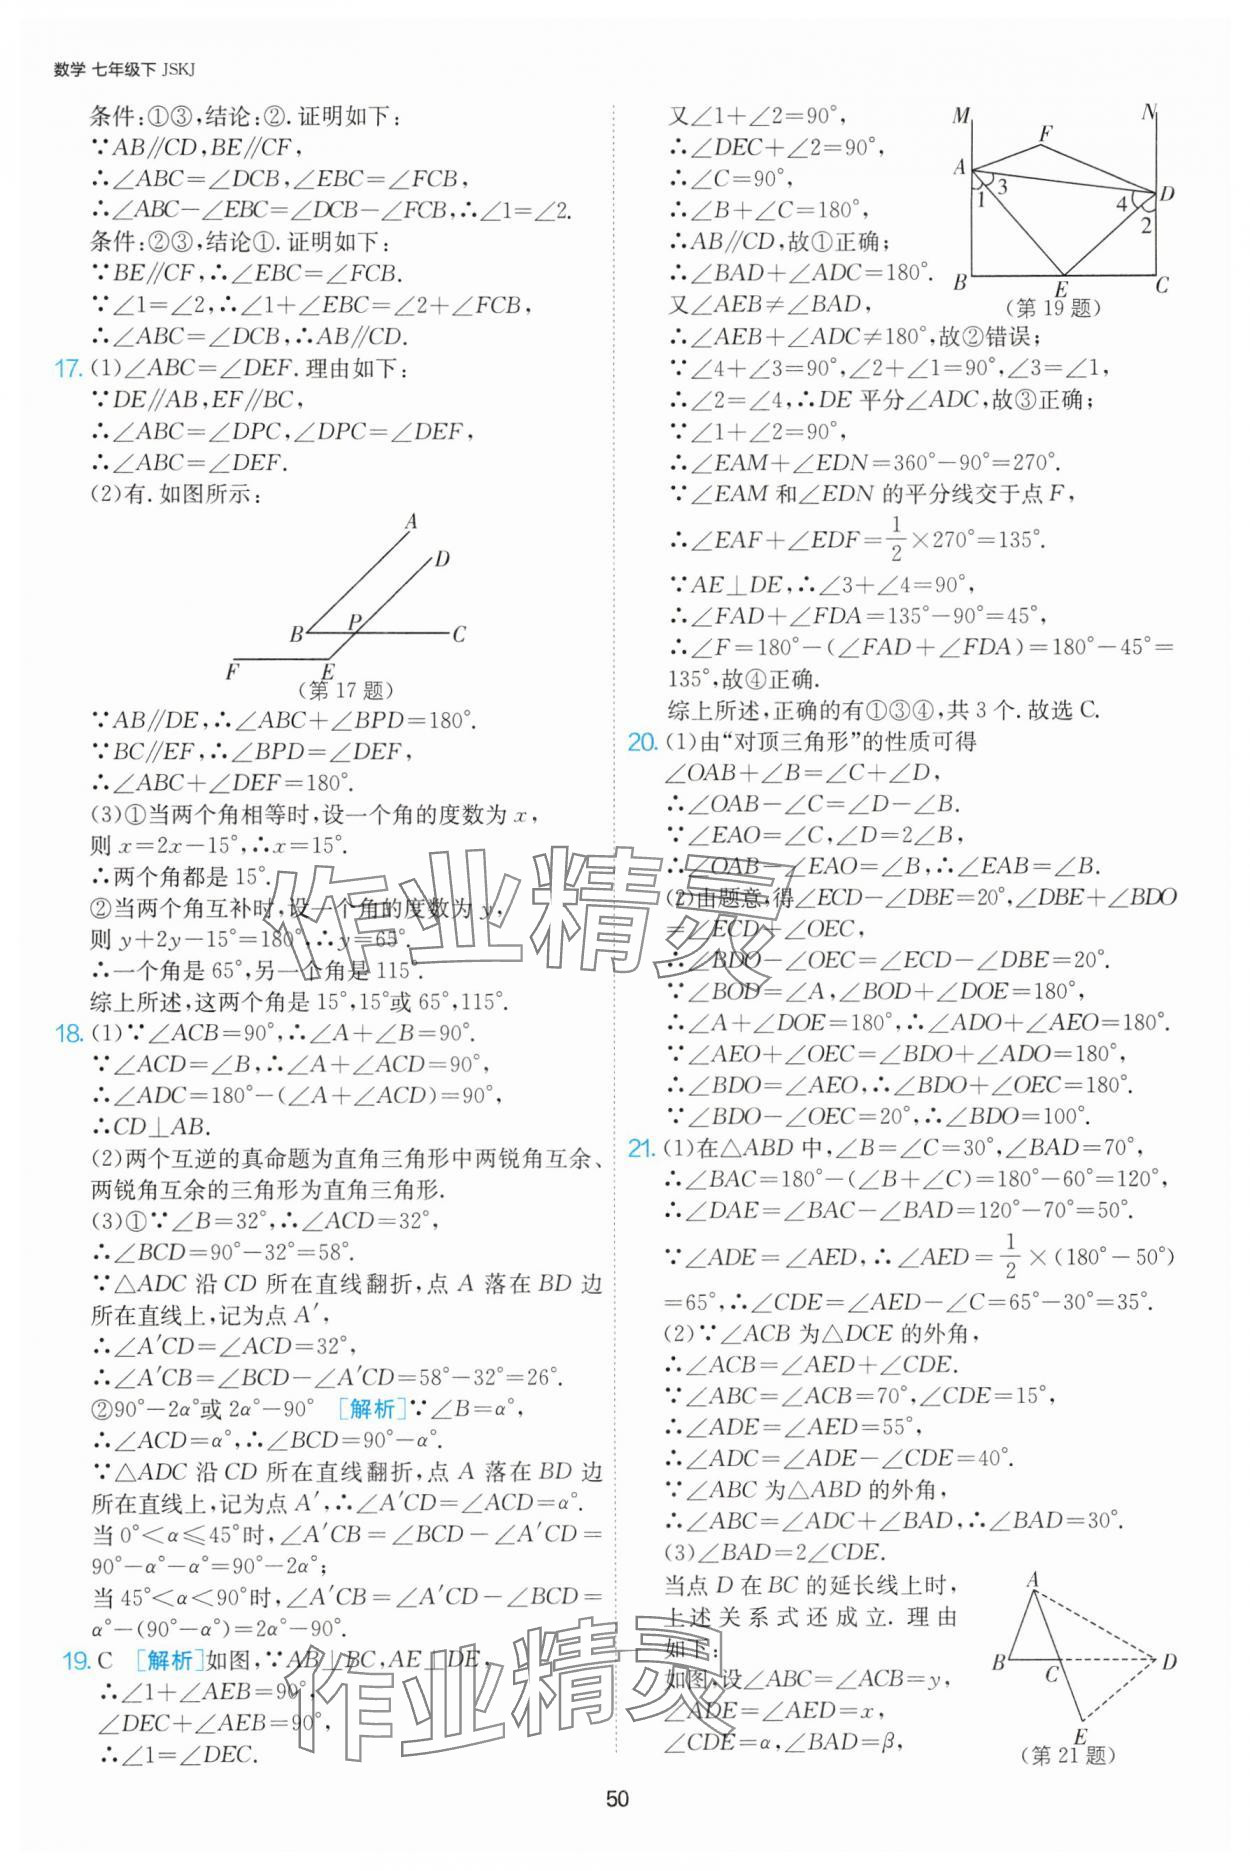 数学 七年级下 JSKJ
条件:①③,结论:②.证明如下:
∵AB∥CD,BE∥CF,
∴∠ABC=∠DCB,∠EBC=∠FCB,
∴∠ABC-∠EBC=∠DCB-∠FCB,∴∠1=∠2.
条件:②③,结论①.证明如下:
∵BE∥CF,∴∠EBC=∠FCB.
∵∠1=∠2,∴∠1+∠EBC=∠2+∠FCB,
∴∠ABC=∠DCB,∴AB∥CD.
17. (1)∠ABC=∠DEF.理由如下:
∵DE∥AB,EF∥BC,
∴∠ABC=∠DPC,∠DPC=∠DEF,
∴∠ABC=∠DEF.
(2)有.如图所示:
A
D
B P C
F E
(第17题)
∵AB∥DE,∴∠ABC+∠BPD=180°.
∵BC∥EF,∴∠BPD=∠DEF,
∴∠ABC+∠DEF=180°.
(3)①当两个角相等时,设一个角的度数为x,
则x=2x-15°,∴x=15°.
∴两个角都是15°.
②当两个角互补时,设一个角的度数为y,
则y+2y-15°=180°,∴y=65°.
∴一个角是65°,另一个角是115°.
综上所述,这两个角是15°,15°或65°,115°.
18. (1)∵∠ACB=90°,∴∠A+∠B=90°.
∵∠ACD=∠B,∴∠A+∠ACD=90°,
∴∠ADC=180°-(∠A+∠ACD)=90°,
∴CD⊥AB.
(2)两个互逆的真命题为直角三角形中两锐角互余、
两锐角互余的三角形为直角三角形.
(3)①∵∠B=32°,∴∠ACD=32°,
∴∠BCD=90°-32°=58°.
∵△ADC沿CD所在直线翻折,点A落在BD边
所在直线上,记为点A′,
∴∠A′CD=∠ACD=32°,
∴∠A′CB=∠BCD-∠A′CD=58°-32°=26°.
②90°-2α°或2α°-90° [解析]∵∠B=α°,
∴∠ACD=α°,∴∠BCD=90°-α°.
∵△ADC沿CD所在直线翻折,点A落在BD边
所在直线上,记为点A′,∴∠A′CD=∠ACD=α°.
当0°<α≤45°时,∠A′CB=∠BCD-∠A′CD=
90°-α°-α°=90°-2α°;
当45°<α<90°时,∠A′CB=∠A′CD-∠BCD=
α°-(90°-α°)=2α°-90°.
19. C [解析]如图,∵AB⊥BC,AE⊥DE,
∴∠1+∠AEB=90°,
∠DEC+∠AEB=90°,
∴∠1=∠DEC.
又∠1+∠2=90°,
∴∠DEC+∠2=90°,
∴∠C=90°,
∴∠B+∠C=180°,
∴AB∥CD,故①正确;
∴∠BAD+∠ADC=180°.
又∠AEB≠∠BAD,
M N
F
A 3 D
1 4 2
B E C
(第19题)
∴∠AEB+∠ADC≠180°,故②错误;
∵∠4+∠3=90°,∠2+∠1=90°,∠3=∠1,
∴∠2=∠4,∴DE平分∠ADC,故③正确;
∵∠1+∠2=90°,
∴∠EAM+∠EDN=360°-90°=270°.
∵∠EAM和∠EDN的平分线交于点F,
∴∠EAF+∠EDF=1/2×270°=135°.
∵AE⊥DE,∴∠3+∠4=90°,
∴∠FAD+∠FDA=135°-90°=45°,
∴∠F=180°-(∠FAD+∠FDA)=180°-45°=
135°,故④正确.
综上所述,正确的有①③④,共3个.故选C.
20. (1)由“对顶三角形”的性质可得
∠OAB+∠B=∠C+∠D,
∴∠OAB-∠C=∠D-∠B.
∵∠EAO=∠C,∠D=2∠B,
∴∠OAB-∠EAO=∠B,∴∠EAB=∠B.
(2)由题意,得∠ECD-∠DBE=20°,∠DBE+∠BDO
=∠ECD+∠OEC,
∴∠BDO-∠OEC=∠ECD-∠DBE=20°.
∵∠BOD=∠A,∠BOD+∠DOE=180°,
∴∠A+∠DOE=180°,∴∠ADO+∠AEO=180°.
∵∠AEO+∠OEC=∠BDO+∠ADO=180°,
∴∠BDO=∠AEO,∴∠BDO+∠OEC=180°.
∵∠BDO-∠OEC=20°,∴∠BDO=100°.
21. (1)在△ABD中,∠B=∠C=30°,∠BAD=70°,
∴∠BAC=180°-(∠B+∠C)=180°-60°=120°,
∴∠DAE=∠BAC-∠BAD=120°-70°=50°.
∵∠ADE=∠AED,∴∠AED=1/2×(180°-50°)
=65°,∴∠CDE=∠AED-∠C=65°-30°=35°.
(2)∵∠ACB为△DCE的外角,
∴∠ACB=∠AED+∠CDE.
∵∠ABC=∠ACB=70°,∠CDE=15°,
∴∠ADE=∠AED=55°,
∴∠ADC=∠ADE-∠CDE=40°.
∵∠ABC为△ABD的外角,
∴∠ABC=∠ADC+∠BAD,∴∠BAD=30°.
(3)∠BAD=2∠CDE.
当点D在BC的延长线上时,
上述关系式还成立.理由
如下:
如图,设∠ABC=∠ACB=y,
∠ADE=∠AED=x,
∠CDE=α,∠BAD=β,
A
B C D
E
(第21题)
作业精灵
作业精灵
50